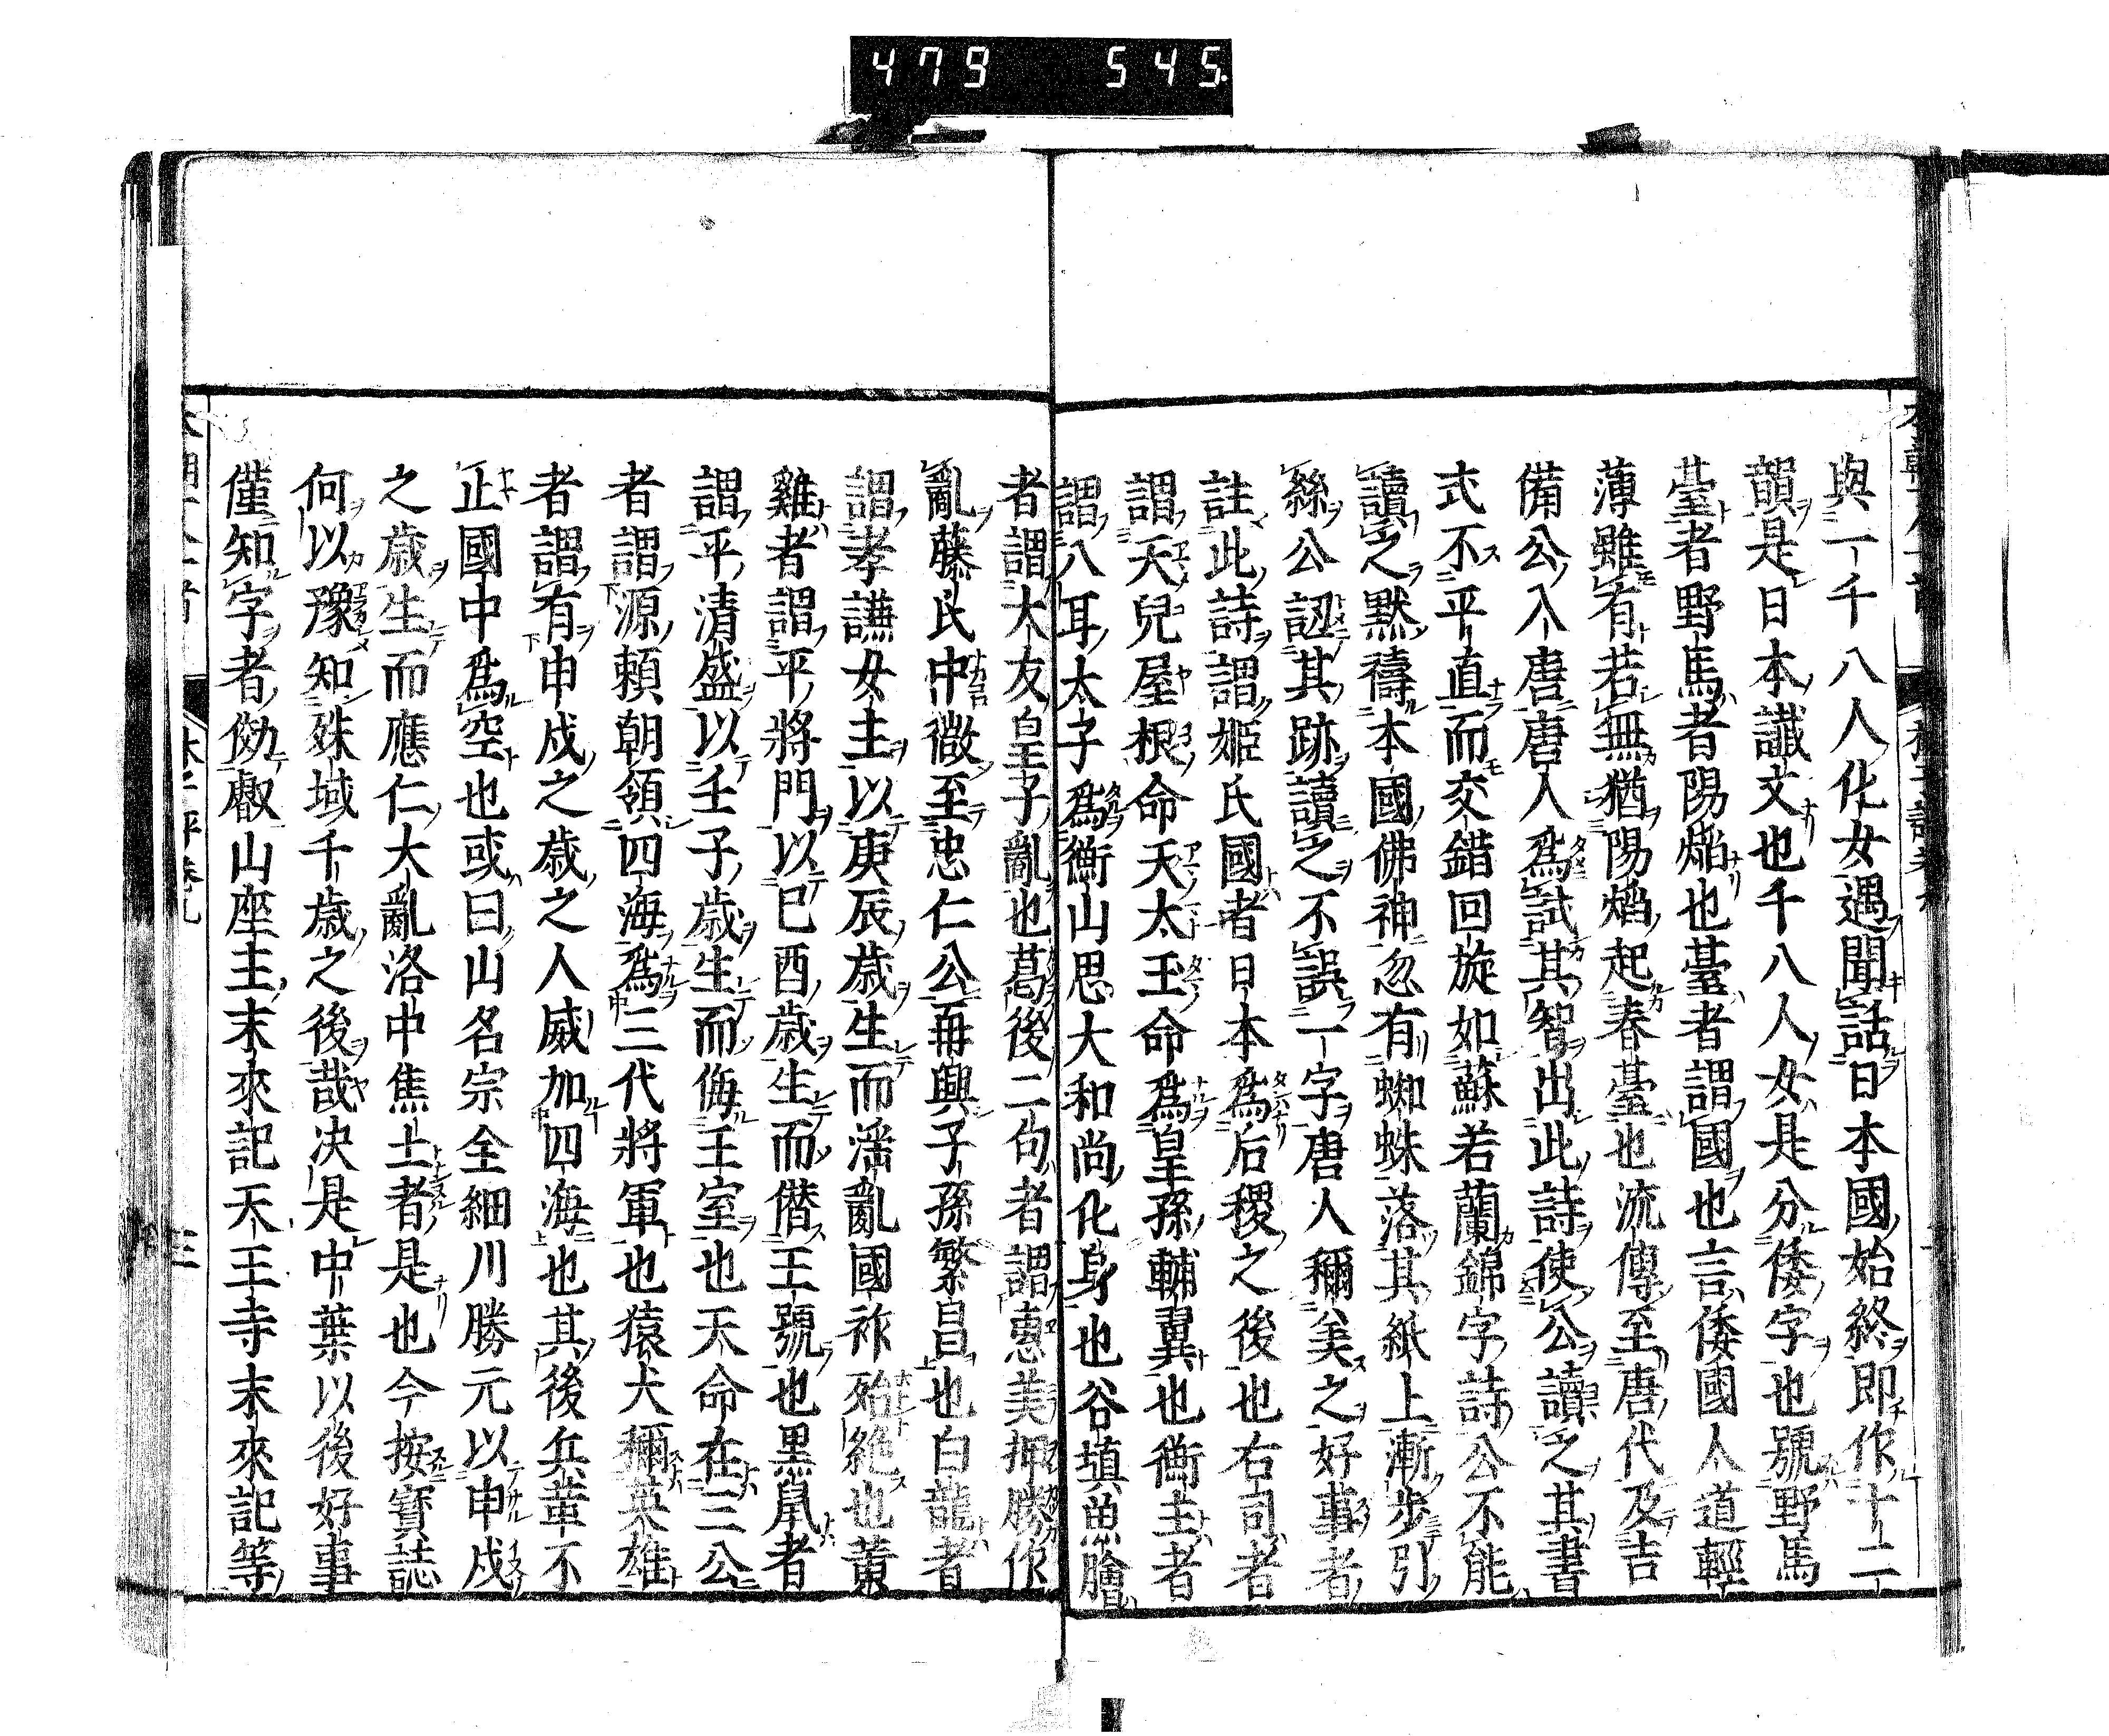 479 545
與一千八人化女遇聞話日本國始終即作十二
韻是日本讖文也千八人女是分倭字也號野馬
臺者野馬者陽焔也臺者謂國也言倭國人道輕
薄雖有若無猶陽焔起春臺也流傳至唐代及吉
備公入唐唐人爲試其智出此詩使公讀之其書
式不平直而交錯回旋如蘇若蘭錦字詩公不能
讀之默禱本國佛神忽有蜘蛛落其紙上漸步引
絲公認其跡讀之不誤一字唐人稱美之好事者
註此詩謂姬氏國者日本爲后稷之後也右司者
謂天兒屋根命天太玉命爲皇孫輔翼也衡主者
謂八耳太子爲衡山思大和尚化身也谷塡魚膾
者謂大友皇子亂也葛後二句者謂惠美押勝作
亂藤氏中微至忠仁公再興子孫繁昌也白龍者
謂孝謙女主以庚辰歲生而滛亂國祚殆絶也黄
雞者謂平將門以巳酉歲生而僣王號也黑鼠者
謂平清盛以壬子歲生而侮王室也天命在三公
者謂源頼朝領四海爲三代將軍也猿犬稱英雄
者謂有申戍之歲之人威加四海也其後兵革不
止國中爲空也或曰山名宗全細川勝元以申戍
之歲生而應仁大亂洛中焦土者是也今按寶誌
何以豫知殊域千歲之後哉决是中葉以後好事
僅知字者倣叡山座主末來記天王寺末來記等